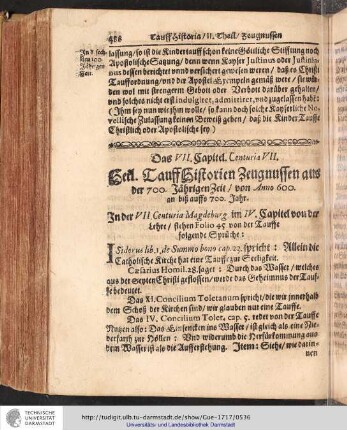 488 Tauff Historia / II. Theil / Zeugnussen
lassung / so ist die Kindertauff schon keine Göttliche Stifftung noch
Apostolische Satzung / denn wenn Kayser Justinus oder Justinia-
nus dessen berichtet und versichert gewesen weren / daß es Christi
Tauffordnung / und der Apostel Exempeln gemäß were / sie wür-
den wol mit strengerem Gebott oder Verbott darüber gehalten /
und solches nicht erst indulgiret, admittiret, und zugelassen haben
(Ihm sey nun wie ihm wolle / so kann doch solche Kayserliche No-
vellische Zulassung keinen Beweiß geben / daß die Kinder Tauffe
Christlich oder Apostolische sey)
Das VII. Capitel. Centuria VII.
Heil. Tauff Historien Zeugnussen aus
der 700. Jährigen Zeit / von Anno 600.
an biß auffs 700. Jahr.
In der VII Centuria Magdeburg im IV. Capitel von der
Lehre / stehen Folio 45 von der Tauffe
folgende Sprüche:
ISidorus lib. 1. de Summo bono cap. 22. spricht: Allein die
Catholische Kirche hat eine Tauff / zur Seeligkeit.
Cæsarius Homil. 28. saget: Durch das Wasser / welches
aus der Seyten Christi geflossen / werde das Geheimnus der Tauf-
fe bedeutet.
Das XI. Concilium Toletanum spricht / die wir innerhalb
dem Schoß der Kirchen sind / wir glauben nur eine Tauffe.
Das IV. Concilium Tolet. cap. 5. redet von der Tauffe
Nutzen also: Das Einsencken ins Wasser / ist gleich als eine Nie-
derfarth zur Höllen: Und widerumb die Herfürkommung aus
dem Wasser ist als die Aufferstehung. Item: Siehe / wie darin-
nen
TECHNISCHE
UNIVERSITÄT
DARMSTADT
http://tudigit.ulb.tu-darmstadt.de/show/Gue-1717/0536
Universitäts- und Landesbibliothek Darmstadt